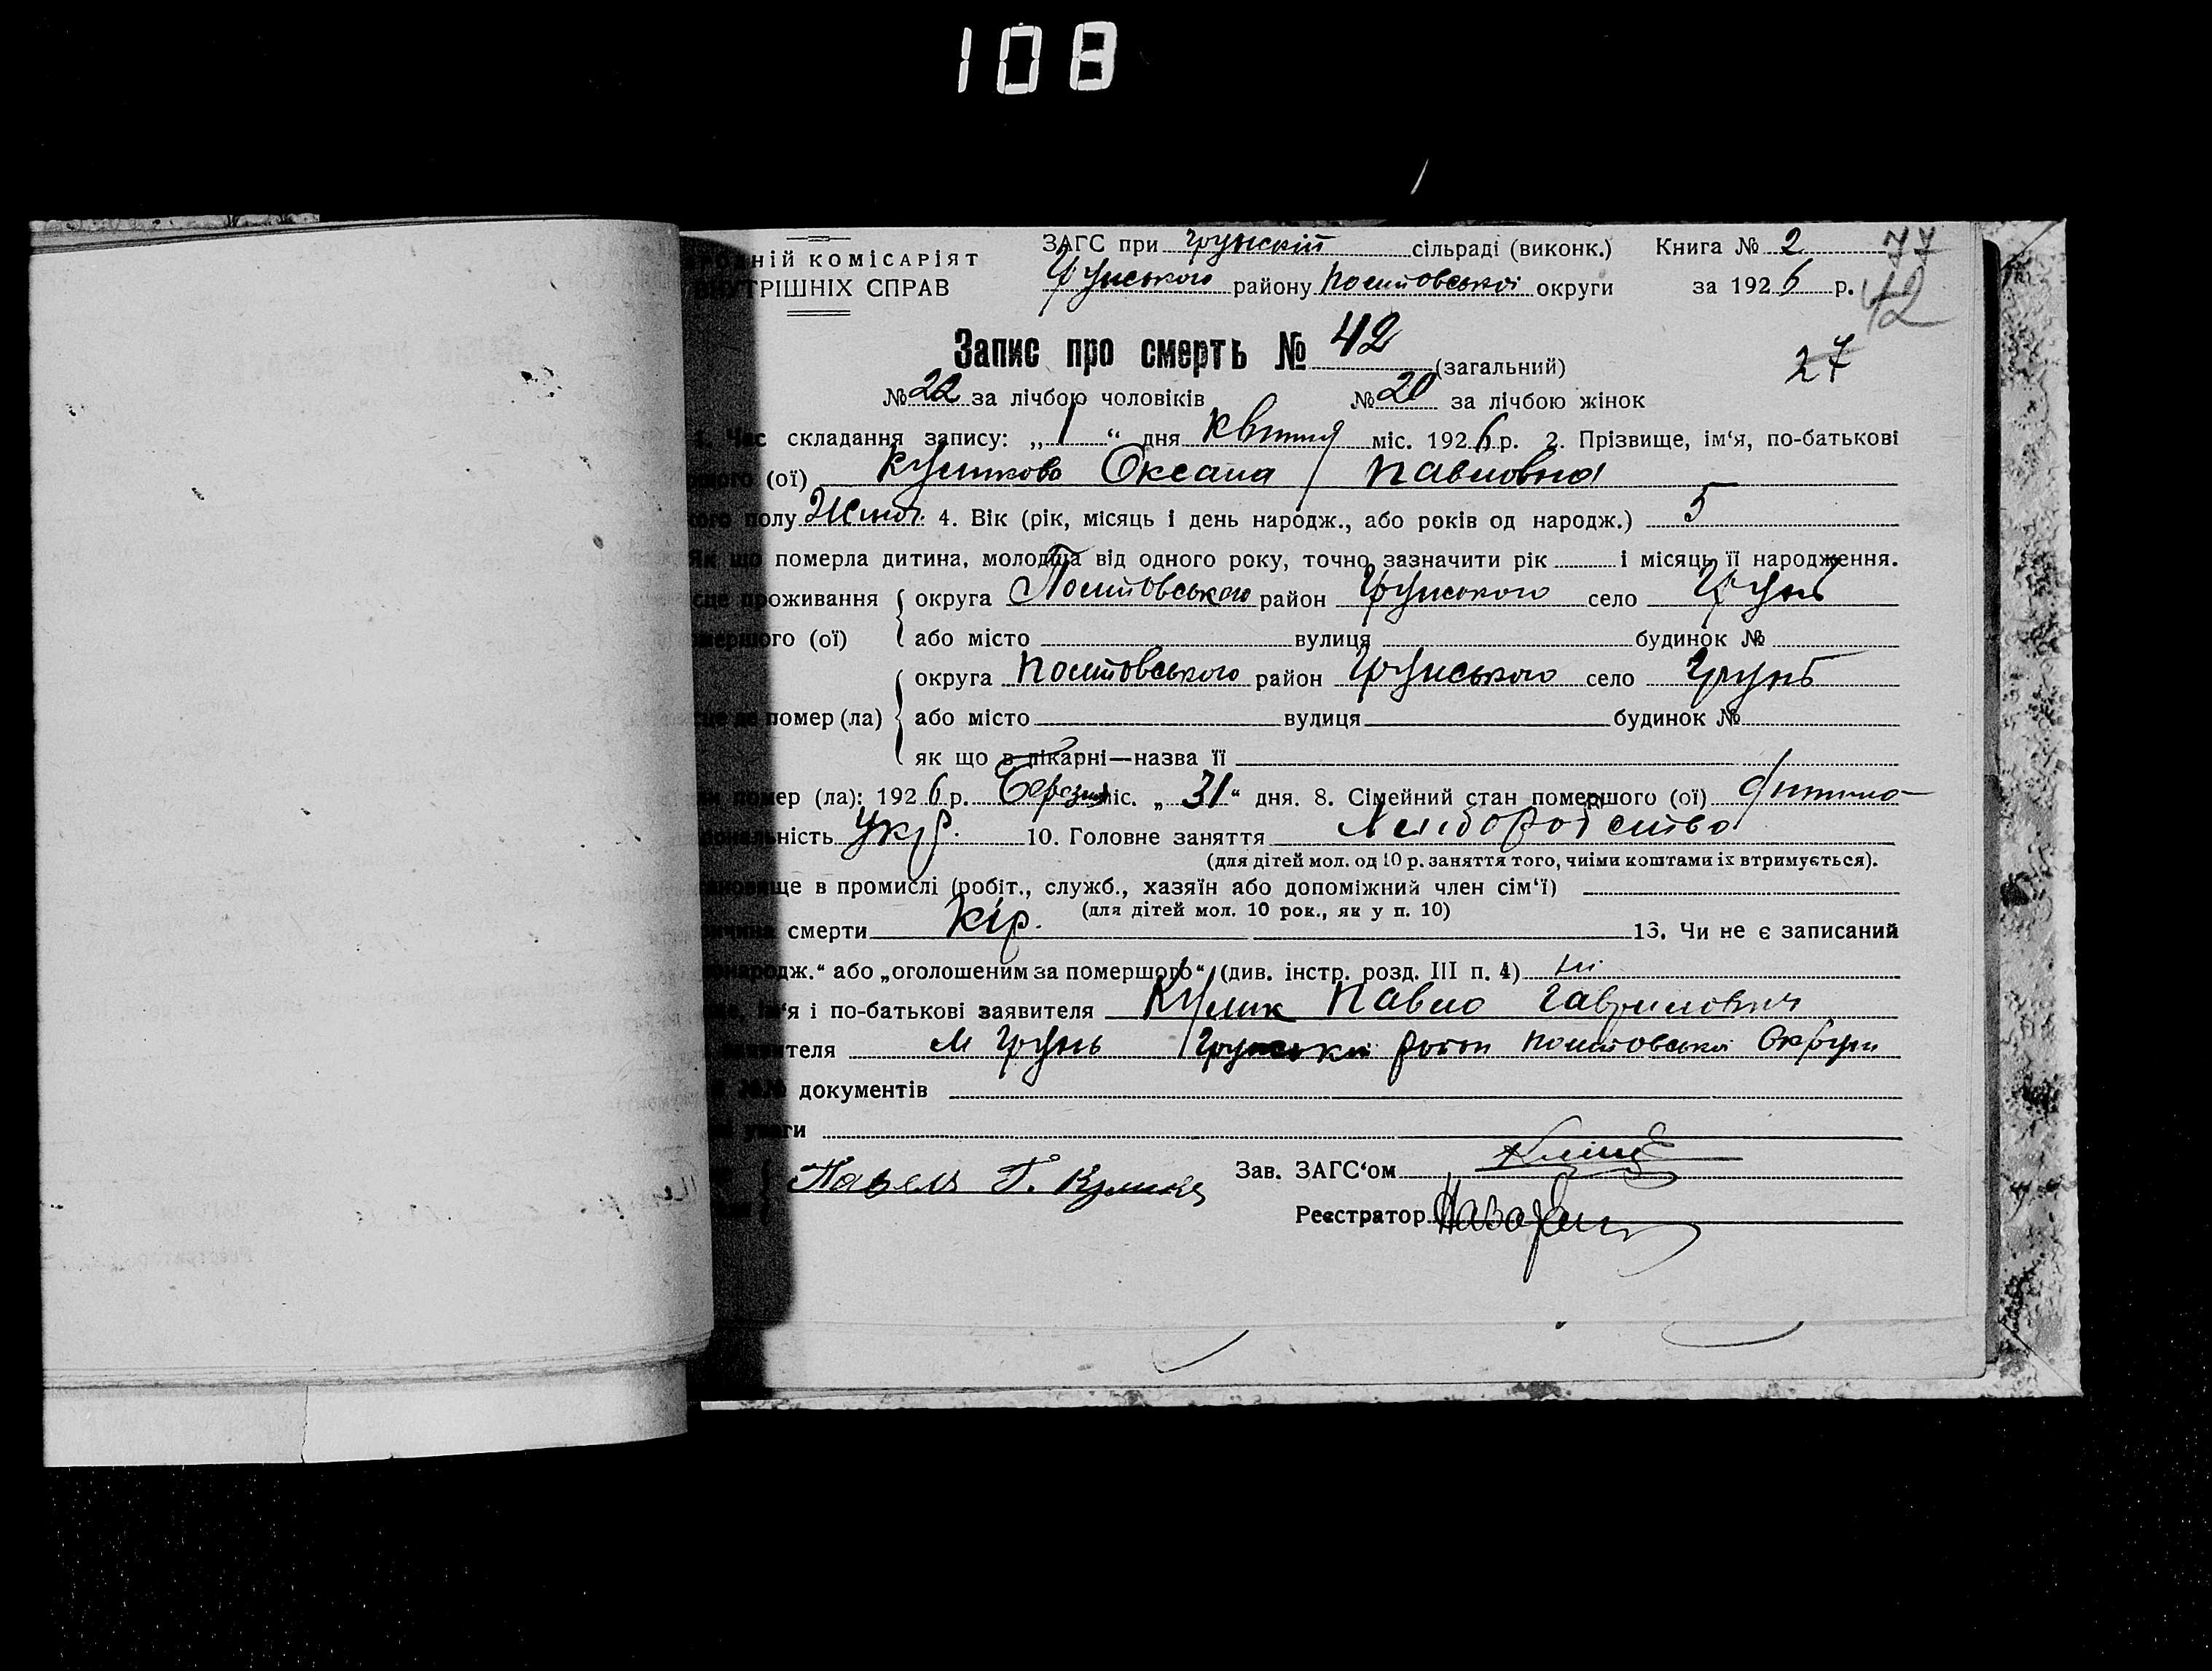 108
ній комісаріят
ТРІШНІХ СПРАВ
ЗАГС при Грунскій сільраді (виконк.) Книга № 2 77
Грунського району Полтовської округи за 1926 р. 42
Запис про смерть № 42 (загальний) 27
№ 22 за лічбою чоловіків № 20 за лічбою жінок
1. Час складання запису: „ 1 “ дня Квітня міс. 1926 р. 2. Прізвище, ім‘я, по-батькові
(ої) Куликова Оксана Павловна
полу Жіночі. 4. Вік (рік, місяць і день народж., або років од народж.) 5
Як що померла дитина, молодша від одного року, точно зазначити рік і місяць її народження.
проживання округа Полтовського район Грунського село Грунь
мершого (ої) або місто вулиця будинок №
округа Полтовського район Грунського село Грунь
помер (ла) або місто вулиця будинок №
як що в лікарні—назва її
помер (ла): 1926 р. Березня міс. „ 31 “ дня. 8. Сімейний стан помершого (ої) дитина
ність Укр. 10. Головне заняття Хліборобство
(для дітей мол. од 10 р. заняття того, чиїми коштами їх втримується).
ще в промислі (робіт., служб., хазяїн або допоміжний член сім‘ї)
(для дітей мол. 10 рок., як у п. 10)
смерти Кір. 13. Чи не є записаний
народж.“ або „оголошеним за помершого“ (див. інстр. розд. III п. 4) ні
ім‘я і по-батькові заявителя Кулик Павло Гаврилович
теля М Грунь Грунський район Полтовської Округи
документів
уваги
Павель Г. Куликъ Зав. ЗАГС‘ом
Реєстратор